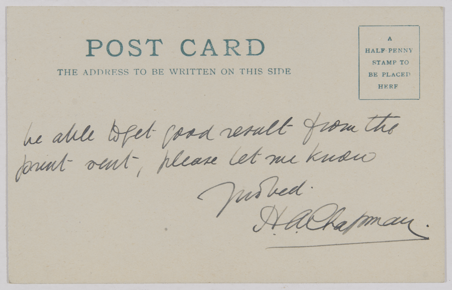 POST CARD
THE ADDRESS TO BE WRITTEN ON THIS SIDE
A
HALF PENNY
STAMP TO
BE PLACED
HERE
be able to get good result from the
print sent, please let me know
H. A. Chapman.